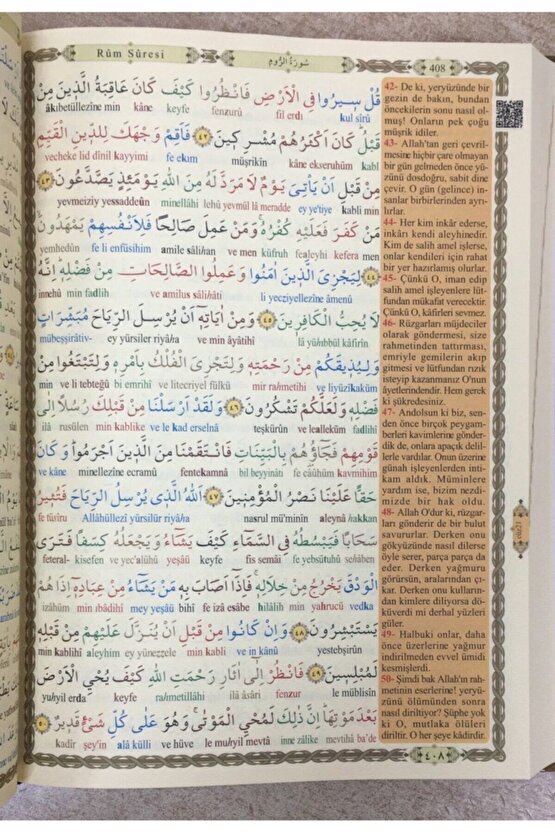 Rûm Sûresi
سُورَةُ الرُّومِ
408
قُلْ سِيرُوا فِي الْاَرْضِ فَانْظُرُوا كَيْفَ كَانَ عَاقِبَةُ الَّذِينَ مِنْ
âkıbetüllezîne min kâne keyfe fenzurû fil erdı kul sîrû
قَبْلُ كَانَ اَكْثَرُهُمْ مُشْرِكِينَ ﴿٤٢﴾ فَاَقِمْ وَجْهَكَ لِلدِّينِ الْقَيِّمِ
vecheke lid dînil kayyimi fe ekım müşrikîn kâne ekseruhüm kabl
مِنْ قَبْلِ اَنْ يَأْتِيَ يَوْمٌ لَا مَرَدَّ لَهُ مِنَ اللهِ يَوْمَئِذٍ يَصَّدَّعُونَ ﴿٤٣﴾
yevmeiziy yessaddeûn minellâhi lehû yevmül lâ meradde ey ye'tiye kabli min
مَنْ كَفَرَ فَعَلَيْهِ كُفْرُهُ وَمَنْ عَمِلَ صَالِحًا فَلِاَنْفُسِهِمْ يَمْهَدُونَ
yemhedûn fe li enfüsihim amile sâlihan ve men küfruh fealeyhi kefera men
﴿٤٤﴾ لِيَجْزِيَ الَّذِينَ اٰمَنُوا وَعَمِلُوا الصَّالِحَاتِ مِنْ فَضْلِهِ اِنَّهُ
innehû min fadlih ve amilus sâlihâti li yecziyellezîne âmenû
لَا يُحِبُّ الْكَافِرِينَ ﴿٤٥﴾ وَمِنْ اٰيَاتِهِ اَنْ يُرْسِلَ الرِّيَاحَ مُبَشِّرَاتٍ
mübeşşirâtiv- ey yürsiler riyâha ve min âyâtihî lâ yühıbbül kâfirîn
وَلِيُذِيقَكُمْ مِنْ رَحْمَتِهِ وَلِتَجْرِيَ الْفُلْكُ بِاَمْرِهِ وَلِتَبْتَغُوا مِنْ
min ve li tebteğû bi emrihî ve litecriyel fülkü mir rahmetihî ve liyüzîkaküm
فَضْلِهِ وَلَعَلَّكُمْ تَشْكُرُونَ ﴿٤٦﴾ وَلَقَدْ اَرْسَلْنَا مِنْ قَبْلِكَ رُسُلًا اِلٰى
ilâ rusülen min kablike ve le kad erselnâ teşkürûn ve leallekûm fadlihî
قَوْمِهِمْ فَجَٓاؤُ۫هُمْ بِالْبَيِّنَاتِ فَانْتَقَمْنَا مِنَ الَّذِينَ اَجْرَمُوا وَكَانَ
ve kâne minellezîne ecramû fentekamnâ bil beyyinâti fe câûhüm kavmihim
حَقًّا عَلَيْنَا نَصْرُ الْمُؤْمِنِينَ ﴿٤٧﴾ اَللهُ الَّذِي يُرْسِلُ الرِّيَاحَ فَتُثِيرُ
fe tüsîru Allâhüllezî yürsilür riyâha nasrul mü'minîn aleynâ hakkan
سَحَابًا فَيَبْسُطُهُ فِي السَّمَٓاءِ كَيْفَ يَشَٓاءُ وَيَجْعَلُهُ كِسَفًا فَتَرَى
feteral- kisefen ve yec'alühû yeşâü keyfe fis semâi fe yebsütuhû sehâben
الْوَدْقَ يَخْرُجُ مِنْ خِلَالِهِ فَاِذَٓا اَصَابَ بِهِ مَنْ يَشَٓاءُ مِنْ عِبَادِهِ اِذَا هُمْ
izâhüm min ıbâdihî mey yeşâü bihî fe izâ esâbe hilâlih min yahrucü vedka
يَسْتَبْشِرُونَ ﴿٤٨﴾ وَاِنْ كَانُوا مِنْ قَبْلِ اَنْ يُنَزَّلَ عَلَيْهِمْ مِنْ قَبْلِهِ
min kablihî aleyhim ey yünezzele min kabli ve in kânû yestebşirûn
لَمُبْلِسِينَ ﴿٤٩﴾ فَانْظُرْ اِلٰٓى اٰثَارِ رَحْمَتِ اللهِ كَيْفَ يُحْيِي الْاَرْضَ
yuhyil erda keyfe rahmetillâhi ilâ âsâri fenzur le müblisîn
بَعْدَ مَوْتِهَا اِنَّ ذٰلِكَ لَمُحْيِي الْمَوْتٰى وَهُوَ عَلٰى كُلِّ شَيْءٍ قَدِيرٌ ﴿٥٠﴾
kadîr şey'in alâ külli ve hüve le muhyil mevtâ inne zâlike mevtihâ ba'de
42- De ki, yeryüzünde bir
gezin de bakın, bundan
öncekilerin sonu nasıl ol-
muş! Onların pek çoğu
müşrik idiler.
43- Allah'tan geri çevril-
mesine hiçbir çare olmayan
bir gün gelmeden önce yü-
zünü dosdoğru, sabit dine
çevir. O gün (gelince) in-
sanlar birbirlerinden ayrı-
lırlar.
44- Her kim inkâr ederse,
inkârı kendi aleyhinedir.
Kim de salih amel işlerse,
onlar kendileri için rahat
bir yer hazırlamış olurlar.
45- Çünkü O, iman edip
salih amel işleyenlere lüt-
fundan mükafat verecektir.
Çünkü O, kâfirleri sevmez.
46- Rüzgarları müjdeciler
olarak göndermesi, size
rahmetinden tattırması,
emriyle gemilerin akıp
gitmesi ve lütfundan rızık
isteyip kazanmanız O'nun
âyetlerindendir. Hem gerek
ki şükredesiniz.
47- Andolsun ki biz, sen-
den önce birçok peygam-
berleri kavimlerine gönder-
dik de, onlara apaçık delil-
lerle vardılar. Onun üzerine
günah işleyenlerden inti-
kam aldık. Müminlere
yardım ise, bizim nezdi-
mizde bir hak oldu.
48- Allah O'dur ki, rüzgar-
ları gönderir de bir bulut
savururlar. Derken onu
gökyüzünde nasıl dilerse
öyle serer, parça parça da
eder. Derken yağmuru
görürsün, aralarından çı-
kar. Derken onu kulların-
dan kimlere diliyorsa dö-
küverdi mi derhal yüzleri
güler.
49- Halbuki onlar, daha
önce üzerlerine yağmur
indirilmeden evvel ümidi
kesmişlerdi.
50- Şimdi bak Allah'ın rah-
metinin eserlerine! yeryü-
zünü ölümünden sonra
nasıl diriltiyor? Şüphe yok
ki O, mutlaka ölüleri
diriltir. O her şeye kâdirdir.
٤٠٨